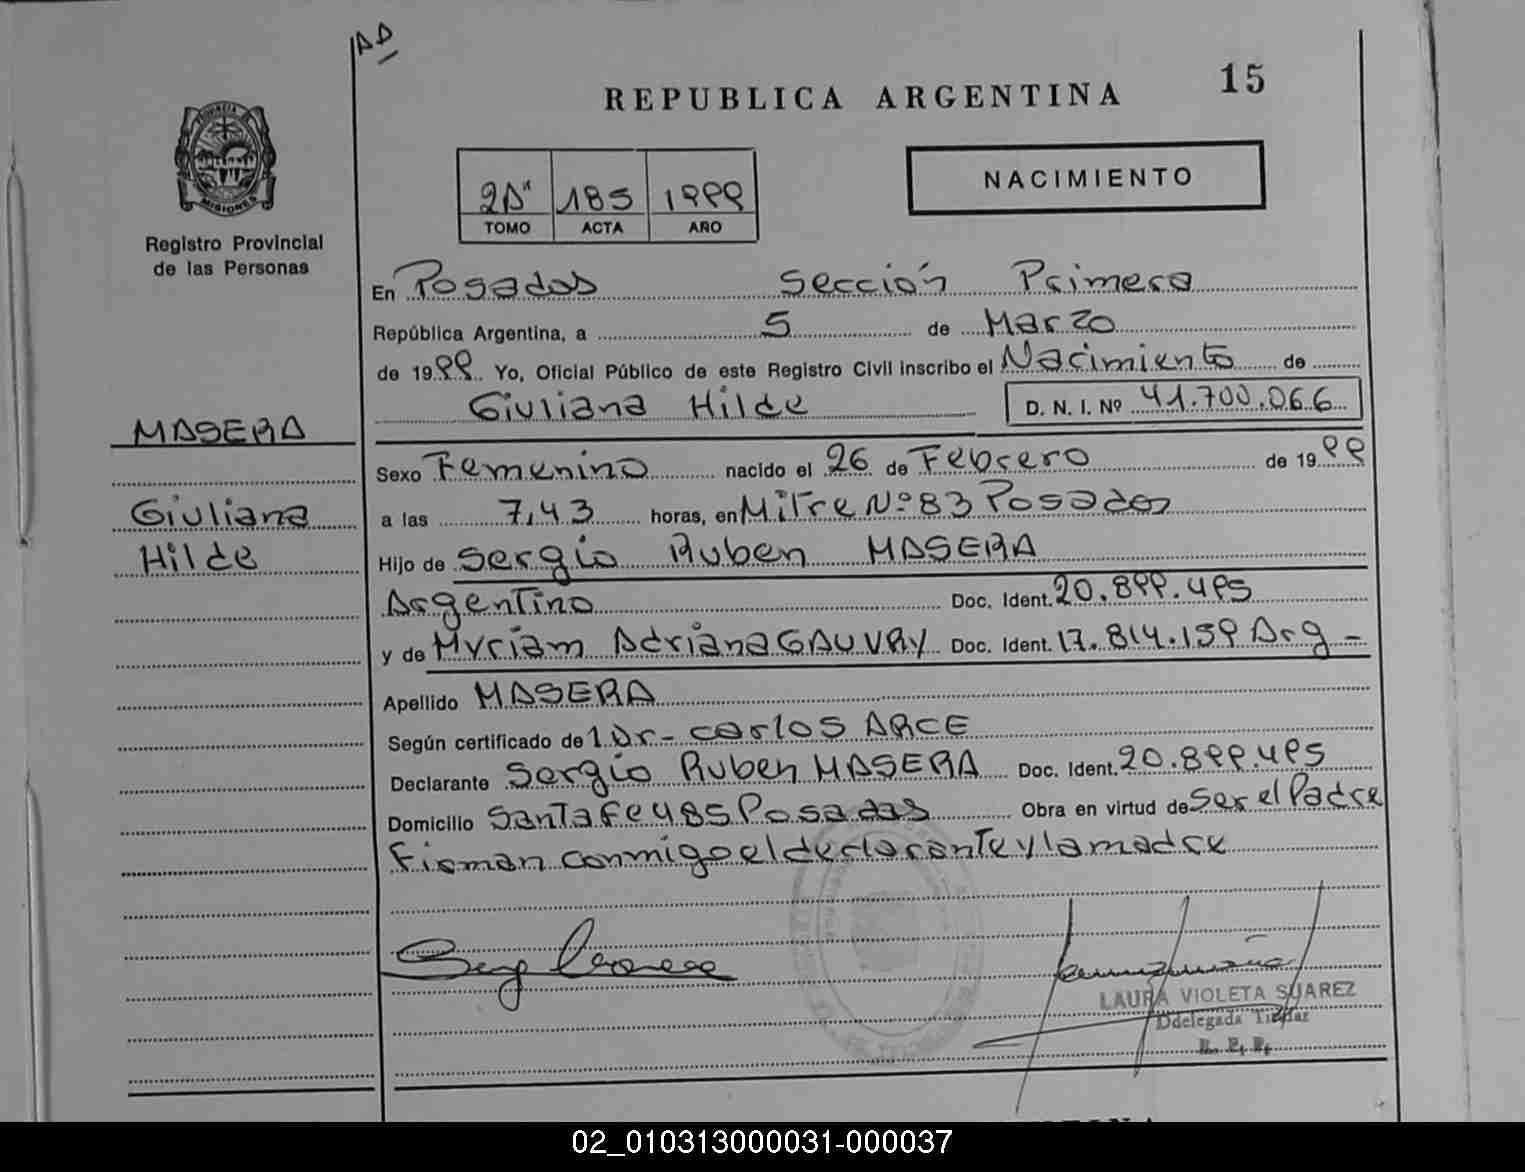 AD
REPUBLICA ARGENTINA
15
PROVINCIA DE
MISIONES
Registro Provincial
de las Personas
2A" 185 1999
TOMO ACTA AÑO
NACIMIENTO
En Posadas Sección Primera
República Argentina, a 5 de Marzo
de 1999 Yo, Oficial Público de este Registro Civil inscribo el Nacimiento de
Giuliana Hilde D. N. I. Nº 41.700.066
MASERA
Giuliana
Hilde
Sexo Femenino nacido el 26 de Febrero de 1999
a las 7,43 horas, en Mitre Nº 83 Posadas
Hijo de Sergio Ruben MASERA
Argentino Doc. Ident. 20.899.495
y de Myriam Adriana GAUVRY Doc. Ident. 17.814.159 Arg -
Apellido MASERA
Según certificado de 1 Dr- Carlos ARCE
Declarante Sergio Ruben MASERA Doc. Ident. 20.899.495
Domicilio Santa Fe 485 Posadas Obra en virtud de Ser el Padre
Firman conmigo el declarante y la madre
LAURA VIOLETA SUAREZ
Ddelegada Titular
R. P. P.
02_010313000031-000037